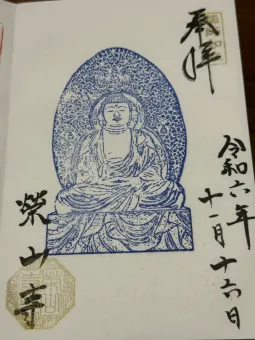 奉拝
令和六年
十一月十六日
榮山寺